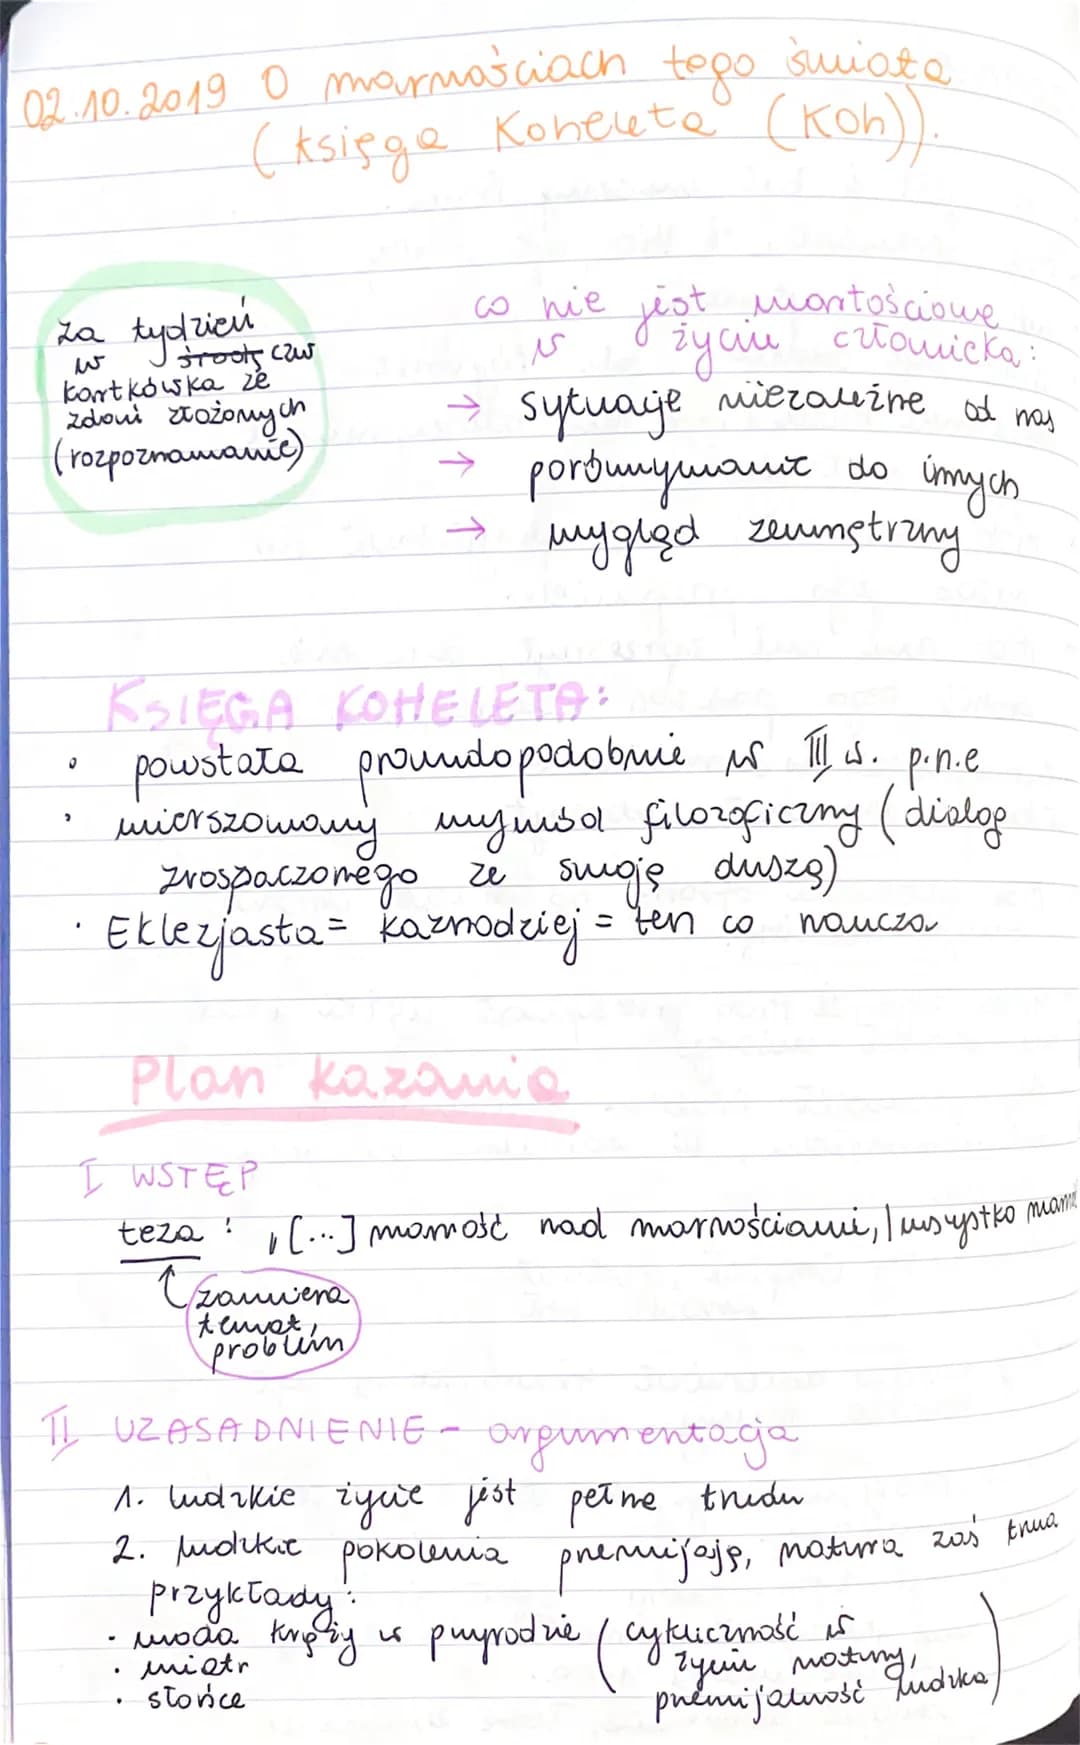 02.10.2019 O marnościach tego świata
(Księga Koheleta (Koh)).
za tydzień
w środę czw
kartkówka ze
zdań złożonych
(rozpoznawanie)
co nie jest wartościowe
w życiu człowieka:
→ sytuacje niezależne od nas
→ porównywanie do innych
→ wygląd zewnętrzny
KSIĘGA KOHELETA:
• powstała prawdopodobnie w III w. p.n.e
• wierszowany wywód filozoficzny (dialog
zrospaczonego ze swoją duszą)
• Eklezjasta = kaznodziej = ten co naucza
Plan kazania
I WSTĘP
teza: „[...] marność nad marnościami, | wszystko marn
zawiera
temat,
problem
II UZASADNIENIE - argumentacja
1. ludzkie życie jest pełne trudu
2. ludzkie pokolenia przemijają, natura zaś trwa
przykłady:
• woda krąży w przyrodzie (cykliczność w
• wiatr życiu natury,
• słońce przemijalność ludzka)